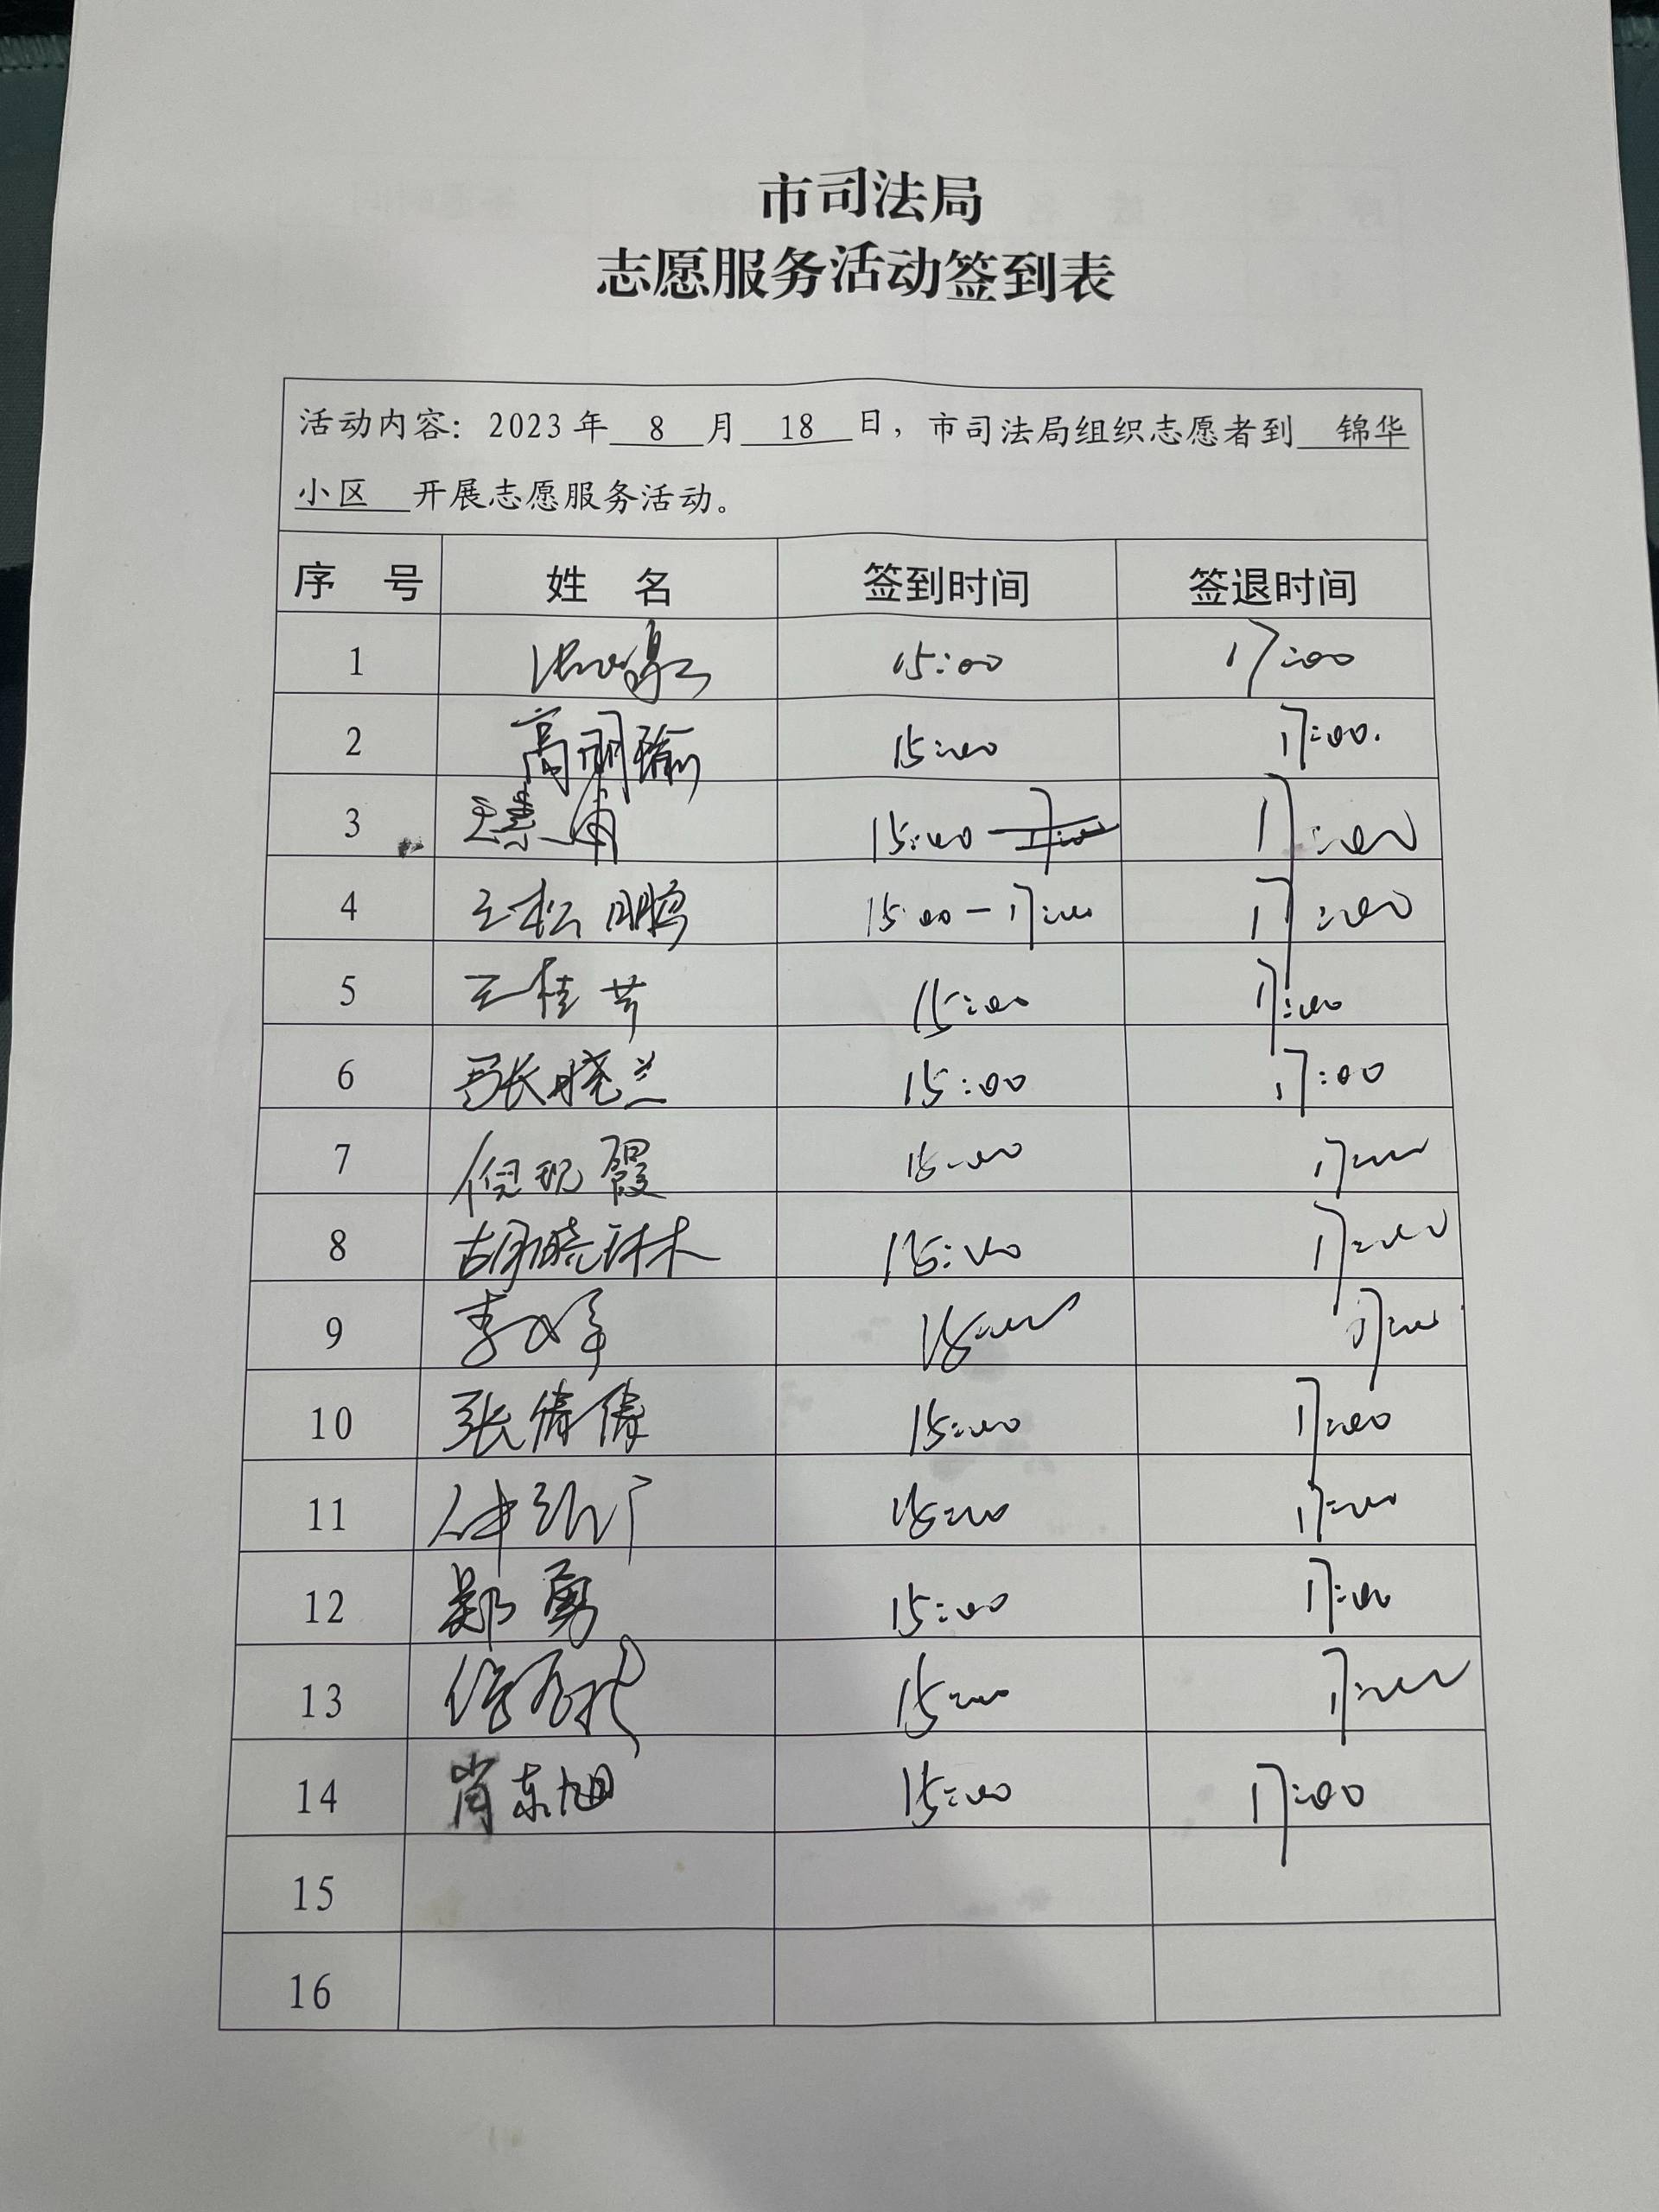 市司法局
志愿服务活动签到表
活动内容：2023年 8 月 18 日，市司法局组织志愿者到 锦华
小区 开展志愿服务活动。
序 号 姓 名 签到时间 签退时间
1 15:00 17:00
2 高 瑜 15:00 17:00.
3 15:00 17:00
4 王松鹏 15:00-17:00 17:00
5 王桂芳 15:00 17:00
6 张晓兰 15:00 17:00
7 倪 霞 15:00 17:00
8 胡晓琳 15:00 17:00
9 李峰 15:00 17:00
10 张倩倩 15:00 17:00
11 15:00 17:00
12 郑勇 15:00 17:00
13 15:00 17:00
14 肖东旭 15:00 17:00
15
16